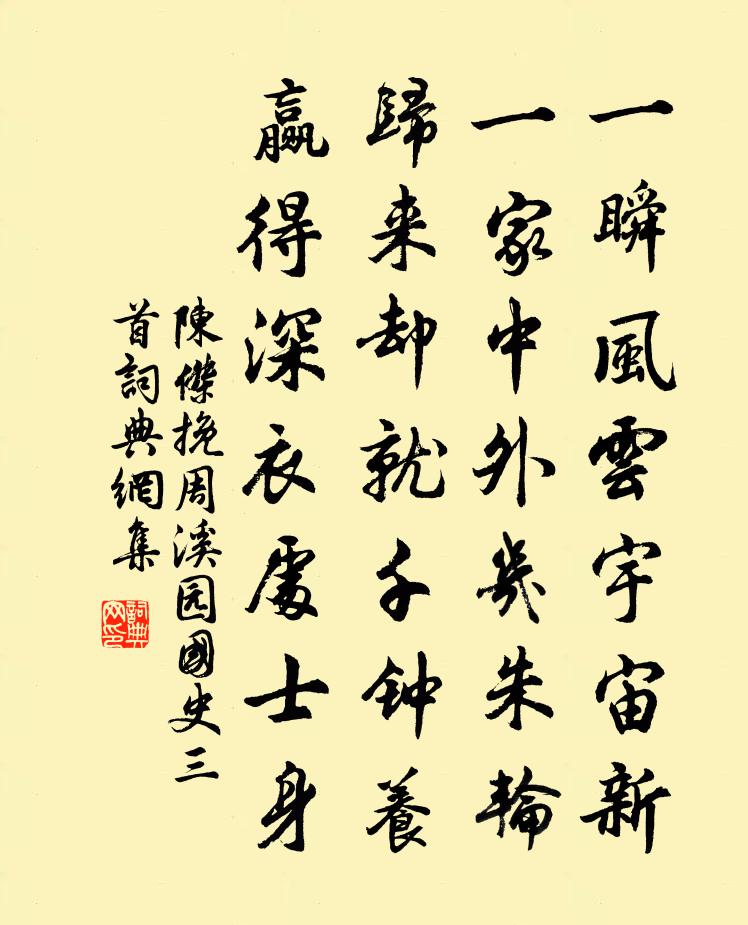 一瞬風雲宇宙新
一家中外幾朱輪
歸来却就千钟養
贏得深衣處士身
陳傑挽周溪园國史三
首詞典網集
詞典
网印